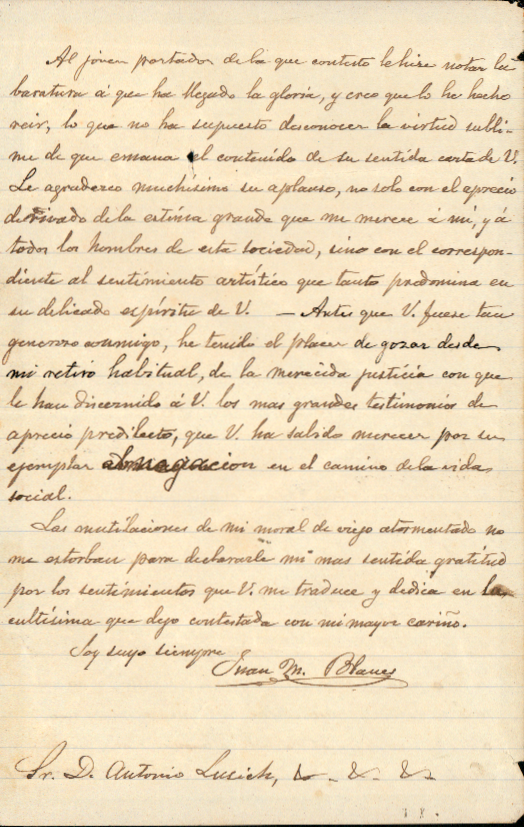 Al jóven portador de la que contesto le hice notar la
baratura á que ha llegado la gloria, y creo que lo he hecho
reir, lo que no ha supuesto desconocer la virtud subli-
me de que emana el contenido de su sentida carta de V.
Le agradezco muchísimo su aplauso, no solo con el aprecio
derivado de la estima grande que me merece á mí, y á
todos los hombres de esta sociedad, sino con el correspon-
diente al sentimiento artístico que tanto predomina en
su delicado espíritu de V. — Antes que V. fuese tan
generoso conmigo, he tenido el placer de gozar desde
mi retiro habitual, de la merecida justicia con que
le han discernido á V. los mas grandes testimonios de
aprecio predilecto, que V. ha sabido merecer por su
ejemplar abnegacion en el camino de la vida
social.
Las mutilaciones de mi moral de viejo atormentado no
me estorban para declararle mi mas sentida gratitud
por los sentimientos que V. me traduce y dedica en la
cultísima que dejo contestada con mi mayor cariño.
Soy suyo siempre
Juan M. Blanes
Sr. D. Antonio Lusich, &. &. &.